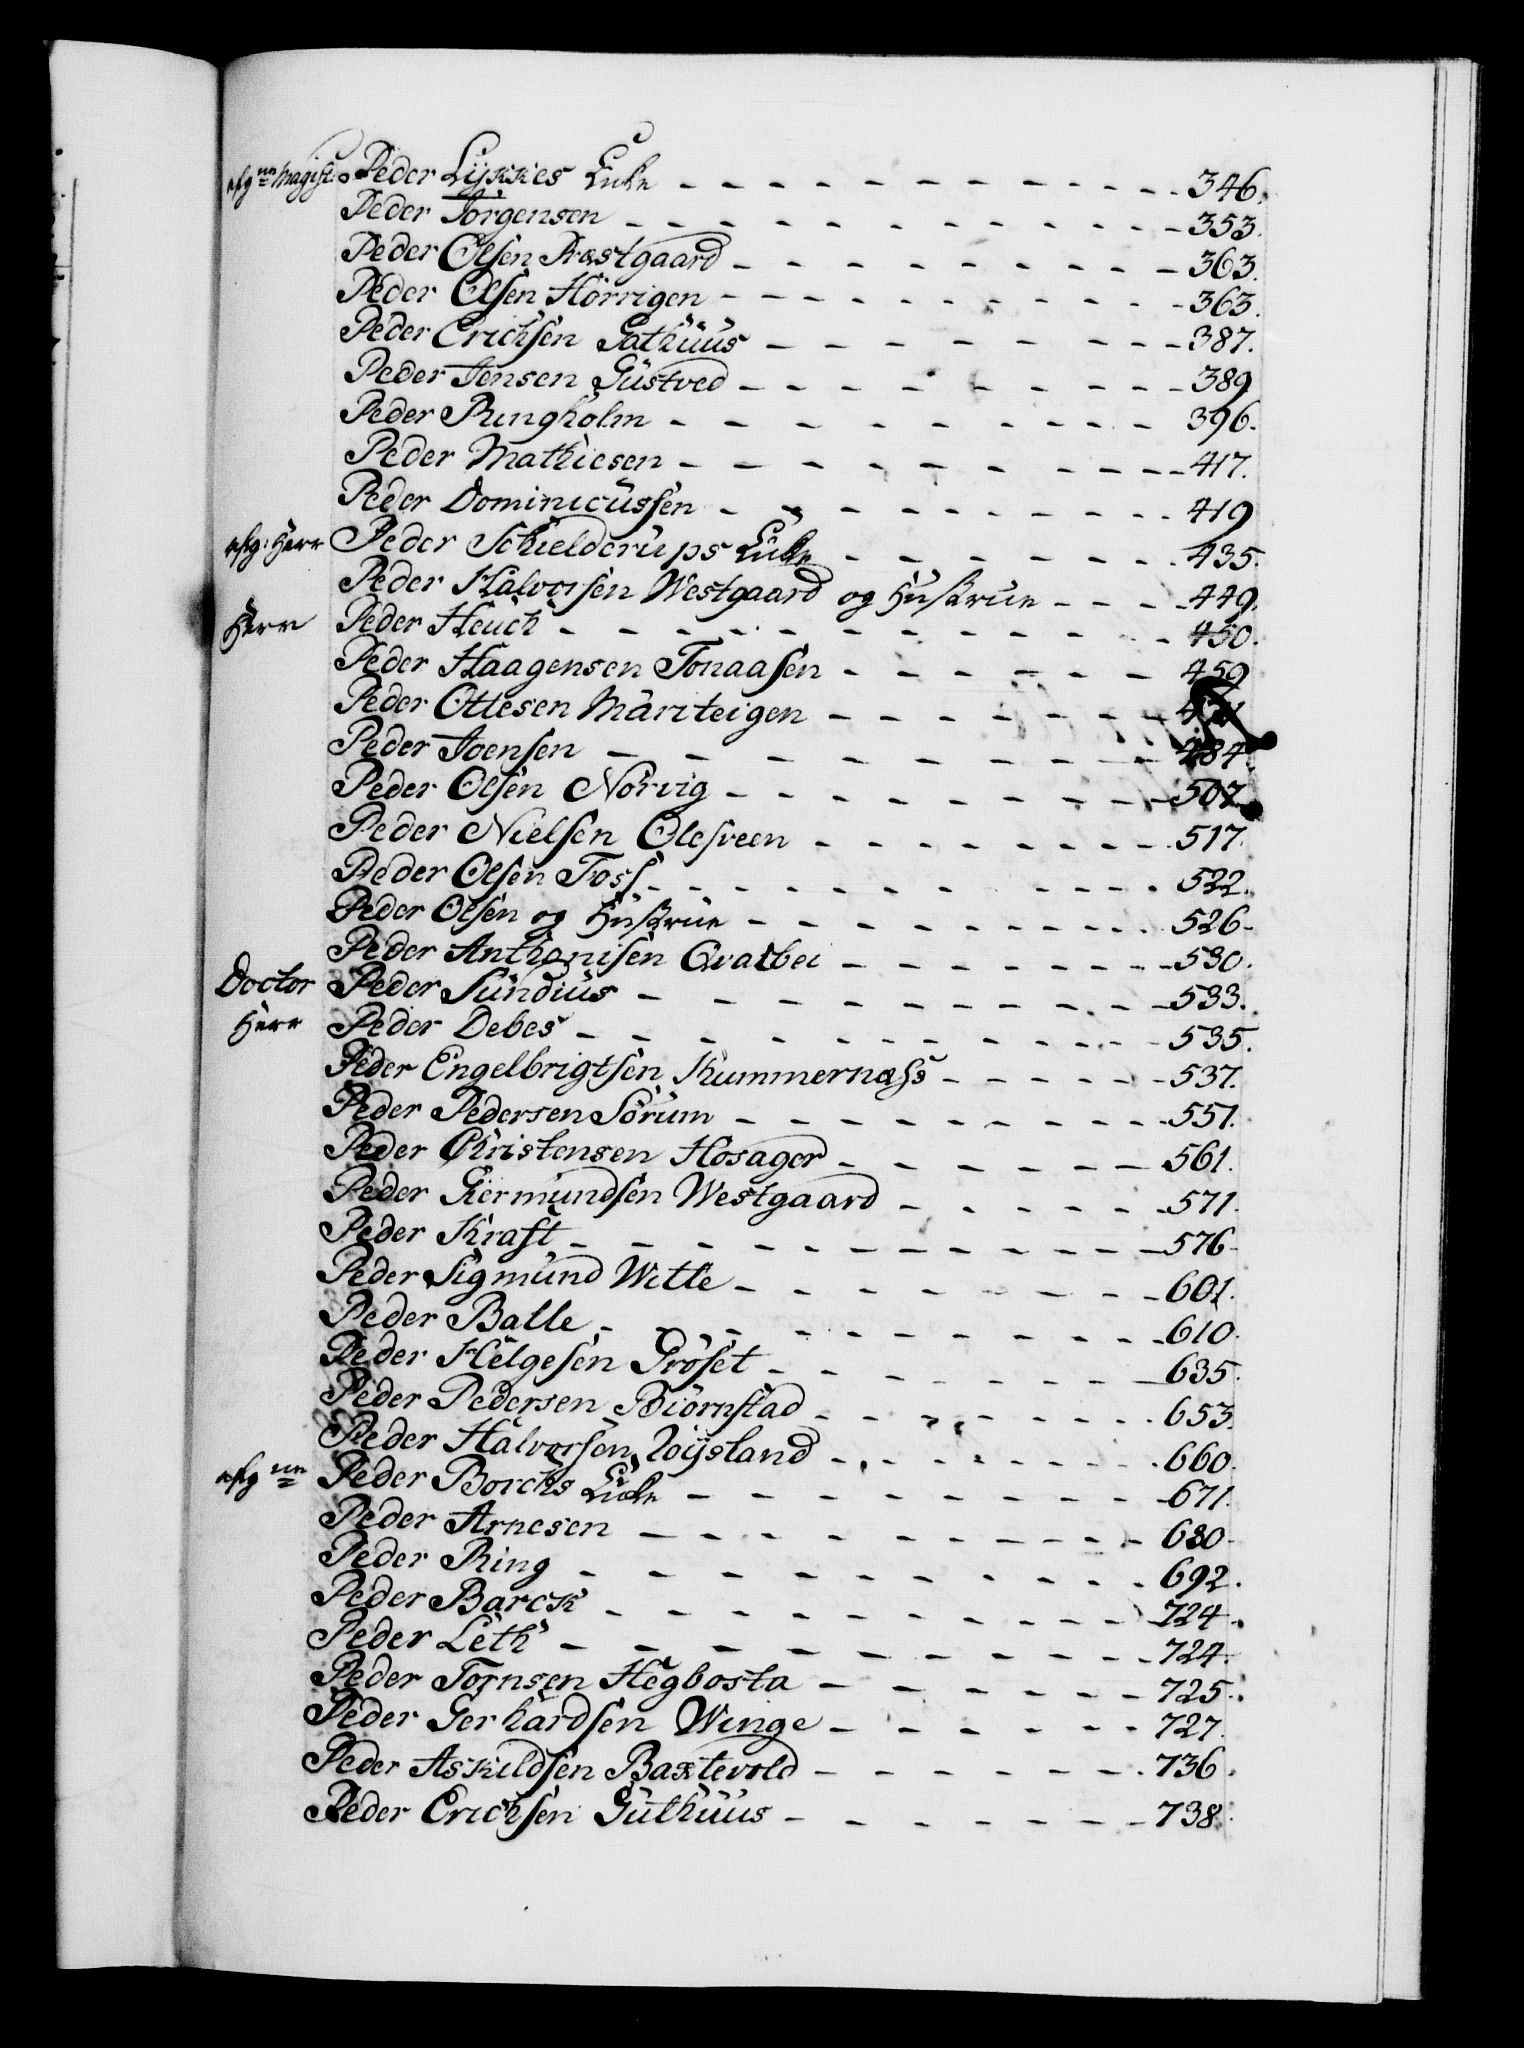 afg: Magist: Peder Lykkes Enke 346.
Peder Jörgensen 353.
Peder Olsen Præstgaard 363.
Peder Olsen Hörrigen 363.
Peder Erichsen Gathuus 387.
Peder Jensen Gustved 389
Peder Ringholm 396.
Peder Mathiesen 417.
Peder Dominicussen 419
afg: Herr Peder Schielderups Enke 435.
Peder Halvorsen Westgaard og Hustrue 449.
Herr Peder Heuch 450.
Peder Haagensen Tonaasen 459
Peder Ottesen Mariteigen
Peder Joensen 484.
Peder Olsen Norvig 507.
Peder Nielsen Olesveen 517.
Peder Olsen Foss 522.
Peder Olsen og Hustrue 526.
Peder Anthonisen Qvalbei 530.
Doctor Peder Sundius 533.
Herr Peder Debes 535.
Peder Engelbrigtsen Kummernæss 537.
Peder Pedersen Sörum 551.
Peder Christensen Hosager 561.
Peder Giermundsen Westgaard 571.
Peder Kraft 576.
Peder Sigmund Witte 601.
Peder Balle 610.
Peder Helgesen Gröset 635.
Peder Pedersen Biörnstad 653.
Peder Halvorsen 660.
afg Peder Borchs Enke 671.
Peder Arnesen 680.
Peder Ring 692.
Peder Barck 724.
Peder Leth 724.
Peder Tornsen Hegbosta 725.
Peder Gerhardsen Winge 727.
Peder Askildsen Baxtevold 736.
Peder Erichsen Guthuus 738.